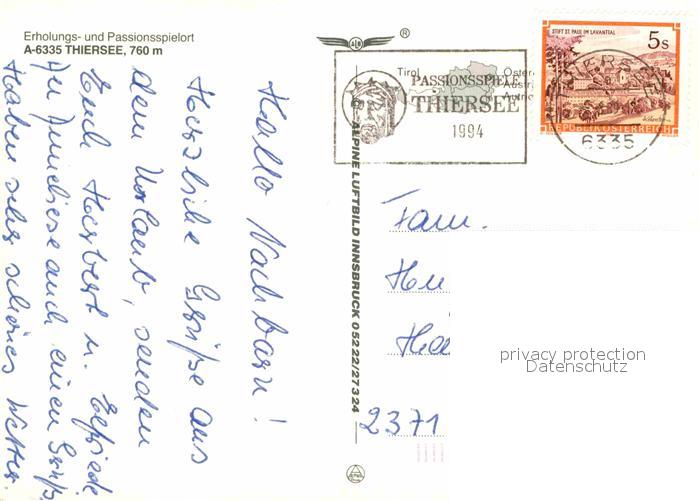 Erholungs- und Passionsspielort
A-6335 THIERSEE, 760 m
Hallo Nachbarn!
Herzliche Grüße aus
dem Urlaub, senden
Euch Herbert u. Elfriede.
An Anneliese auch einen Gruß
Haben sehr schönes Wetter.
ALPINE LUFTBILD INNSBRUCK 05222/27324
®
Tirol
Österr
Austri
Autric
PASSIONSSPIELE
THIERSEE
1994
STIFT ST. PAUL IM LAVANTTAL
5s
REPUBLIK ÖSTERREICH
6335
Fam.
Hu
Ha
2371
privacy protection
Datenschutz